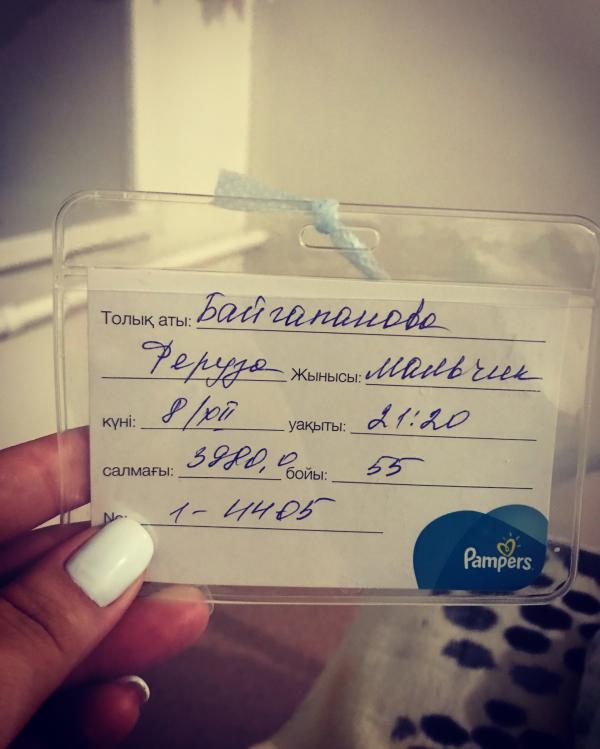 Толық аты: Байгапанова
Феруза Жынысы: Мальчик
күні: 8/XII уақыты: 21:20
салмағы: 3980,0 бойы: 55
№: 1-4405
Pampers